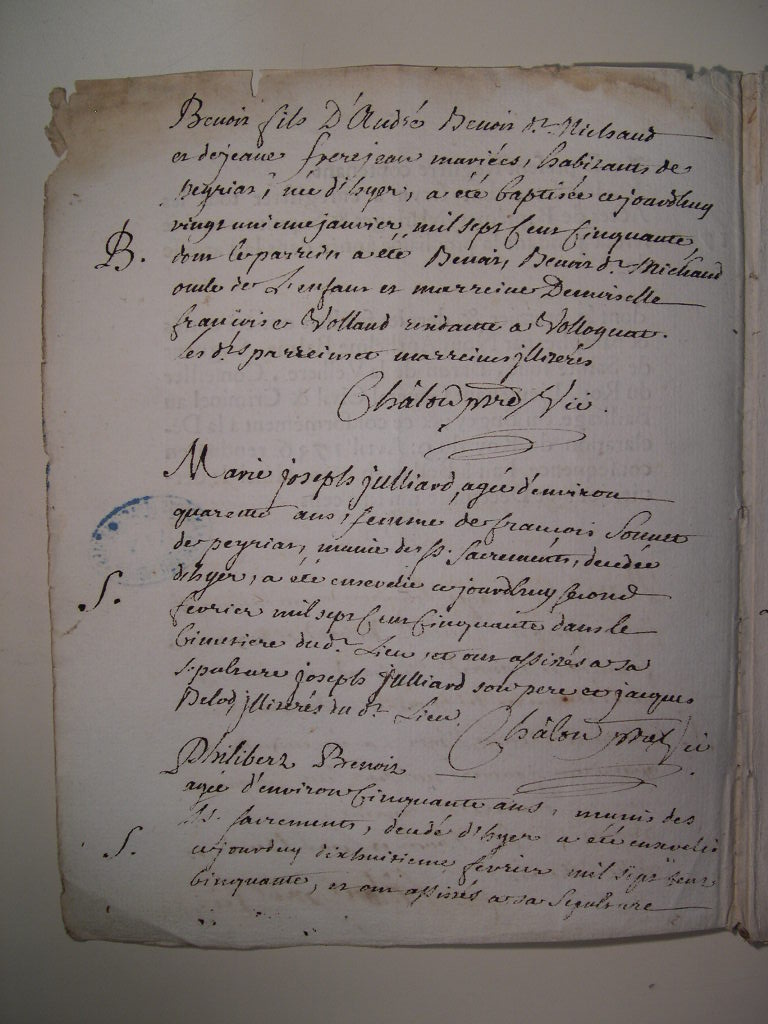 Benoit fils D'André Benoit dt. Michaud
et de jeane frerejean mariées, habitants de
peyriat, née d'hyer, a été baptisée cejourdhuy
vingt unieme janvier, mil sept cent cinquante,
B. dont le parrein a été Benoit, Benoit dt. Michaud
oncle de L'enfant et marreine Demoiselle
francoise Volland residante a Volognat.
les dts parrein et marreine jlliterés
Châlon ptre Vic.
Marie joseph julliard, agée d'environ
quarente ans, femme de francois Sonnet
de peyriat, munie des st. Sacrements, decedée
S. d'hyer, a été ensevelie cejourdhuy second
fevrier mil sept cent cinquante dans le
Cimetiere dudt. Lieu, et ont assistés a sa
sepulture joseph julliard son pere et jacques
Belod, jlliterés du dt. Lieu.
Châlon ptre Vic
Philibert Benoit
agée d'environ cinquante ans, munis des
sts. sacrements, decedé d'hyer a été ensevelis
S. cejourdhuy dixhuitieme fevrier mil sept cent
cinquante, et ont assistés a sa sepulture